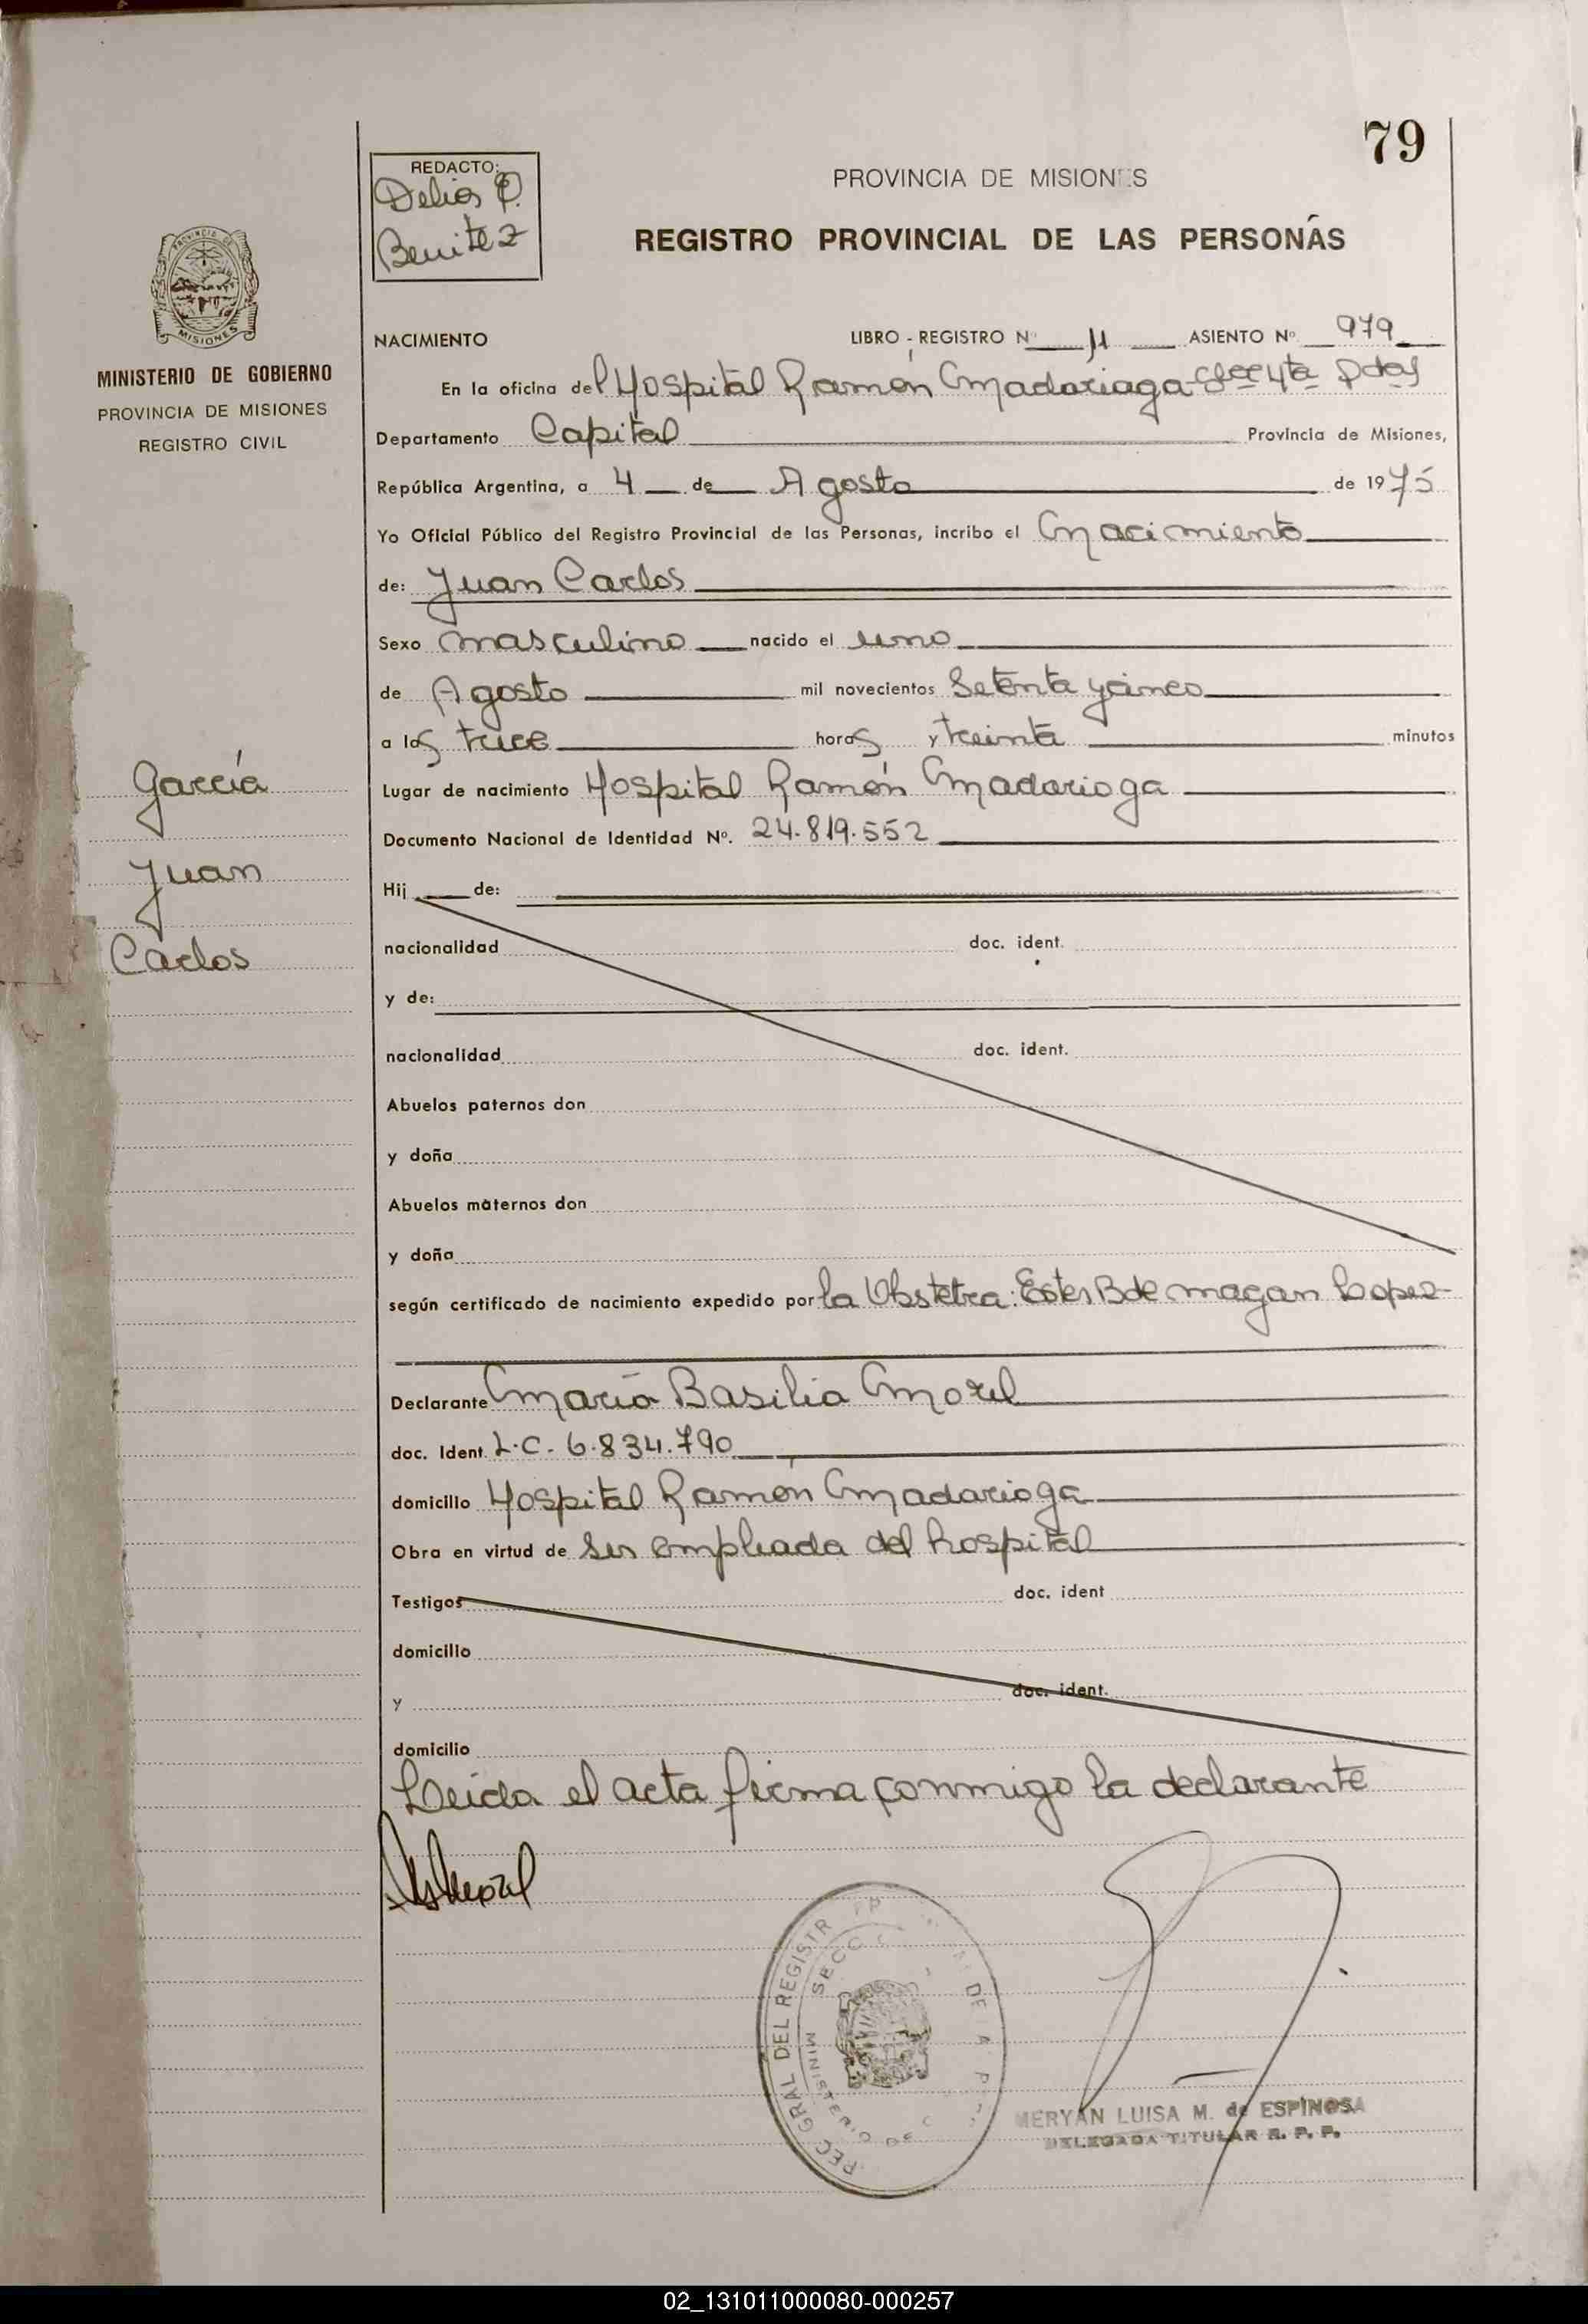 79
REDACTO:
Delia P.
Benitez
PROVINCIA DE MISIONES
REGISTRO PROVINCIAL DE LAS PERSONAS
PROVINCIA DE
MISIONES
MINISTERIO DE GOBIERNO
PROVINCIA DE MISIONES
REGISTRO CIVIL
NACIMIENTO LIBRO - REGISTRO Nº ASIENTO Nº 979
En la oficina del Hospital Ramón Madariaga Secc 4ta Pdas
Departamento Capital Provincia de Misiones,
República Argentina, a 4 de Agosto de 1975
Yo Oficial Público del Registro Provincial de las Personas, incribo el Nacimiento
de: Juan Carlos
Sexo masculino nacido el uno
de Agosto mil novecientos Setenta y cinco
a las trece horas y treinta minutos
Lugar de nacimiento Hospital Ramón Madariaga
Documento Nacional de Identidad Nº. 24.819.552
García
Juan
Carlos
Hij de:
nacionalidad doc. ident.
y de:
nacionalidad doc. ident.
Abuelos paternos don
y doña
Abuelos maternos don
y doña
según certificado de nacimiento expedido por la Obstetra: Ester B de Magan Lopez
Declarante María Basilia Morel
doc. Ident. L.C. 6.834.790
domicilio Hospital Ramón Madariaga
Obra en virtud de ser empleada del hospital
Testigos doc. ident
domicilio
y doc. ident.
domicilio
Leida el acta firma conmigo la declarante
Morel
GRAL DEL REGISTR
SECC
MINISTERIO DE
MERYAN LUISA M. de ESPINOSA
DELEGADA TITULAR R. P. P.
02_131011000080-000257